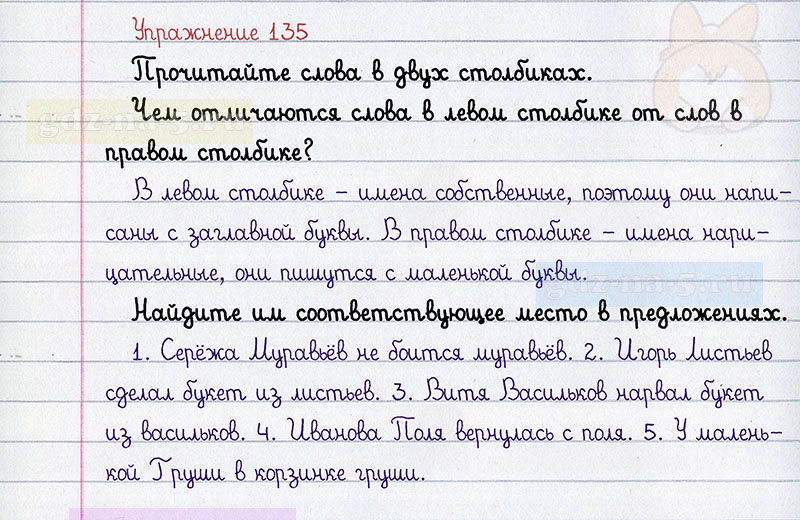 Упражнение 135
Прочитайте слова в двух столбиках.
Чем отличаются слова в левом столбике от слов в
правом столбике?
В левом столбике – имена собственные, поэтому они напи-
саны с заглавной буквы. В правом столбике – имена нари-
цательные, они пишутся с маленькой буквы.
Найдите им соответствующее место в предложениях.
1. Серёжа Муравьёв не боится муравьёв. 2. Игорь Листьев
сделал букет из листьев. 3. Витя Васильков нарвал букет
из васильков. 4. Иванова Поля вернулась с поля. 5. У малень-
кой Груши в корзинке груши.
gdz-na-5.ru
gdz-na-5.ru